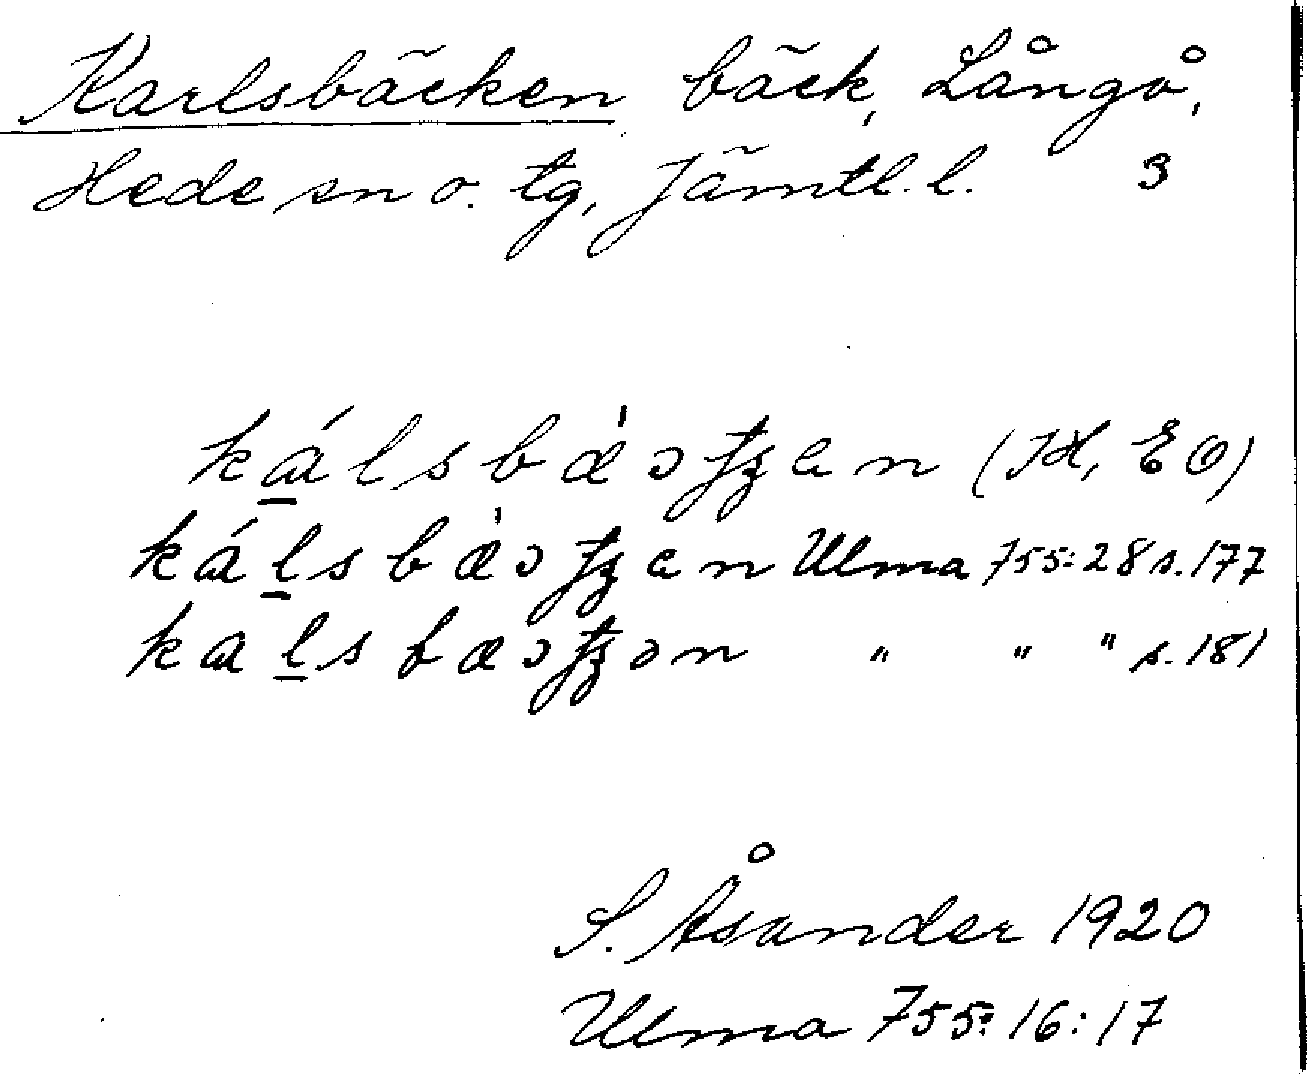 Karlsbäcken bäck, Långå,
Hede sn o. tg, Jämtl. l. 3
ká̱lsbæ̀ɔʈʒen (JH, EO)
kál̲sbæ̀ɔʈʒen Ulma 755:28 s. 177
kal̲sbæɔʈʒən " " " s. 181
S. Åsander 1920
Ulma 755:16:17